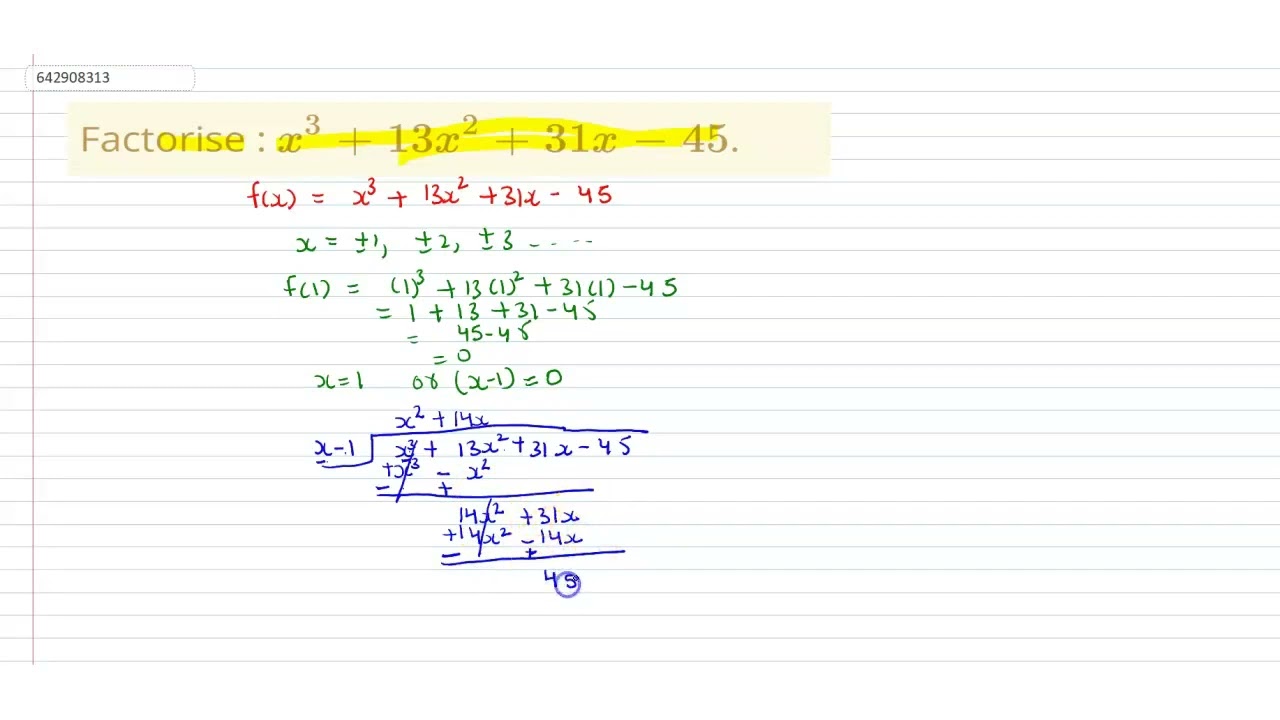 642908313
Factorise : x³ + 13x² + 31x − 45.
f(x) = x³ + 13x² + 31x - 45
x = ±1, ±2, ±3 - . . . .
f(1) = (1)³ + 13(1)² + 31(1) - 45
= 1 + 13 + 31 - 45
= 45-45
= 0
x=1 or (x-1) = 0
x² + 14x
x-1 x³ + 13x² + 31x - 45
+x³ - x²
- +
14x² + 31x
+14x² - 14x
- +
45